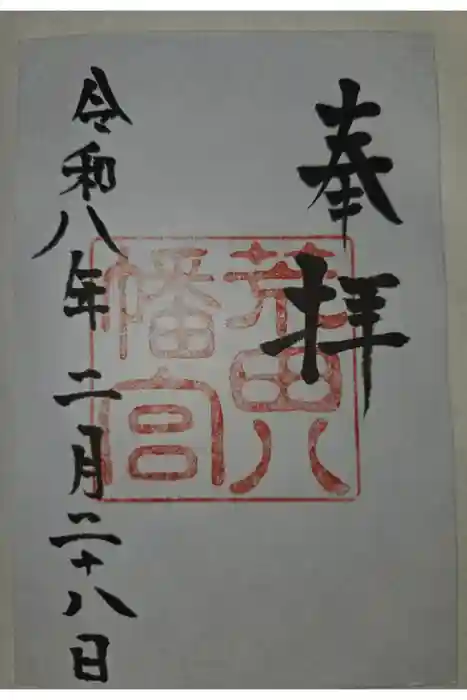 奉拝
荒田八
幡宮
令和八年二月二十八日